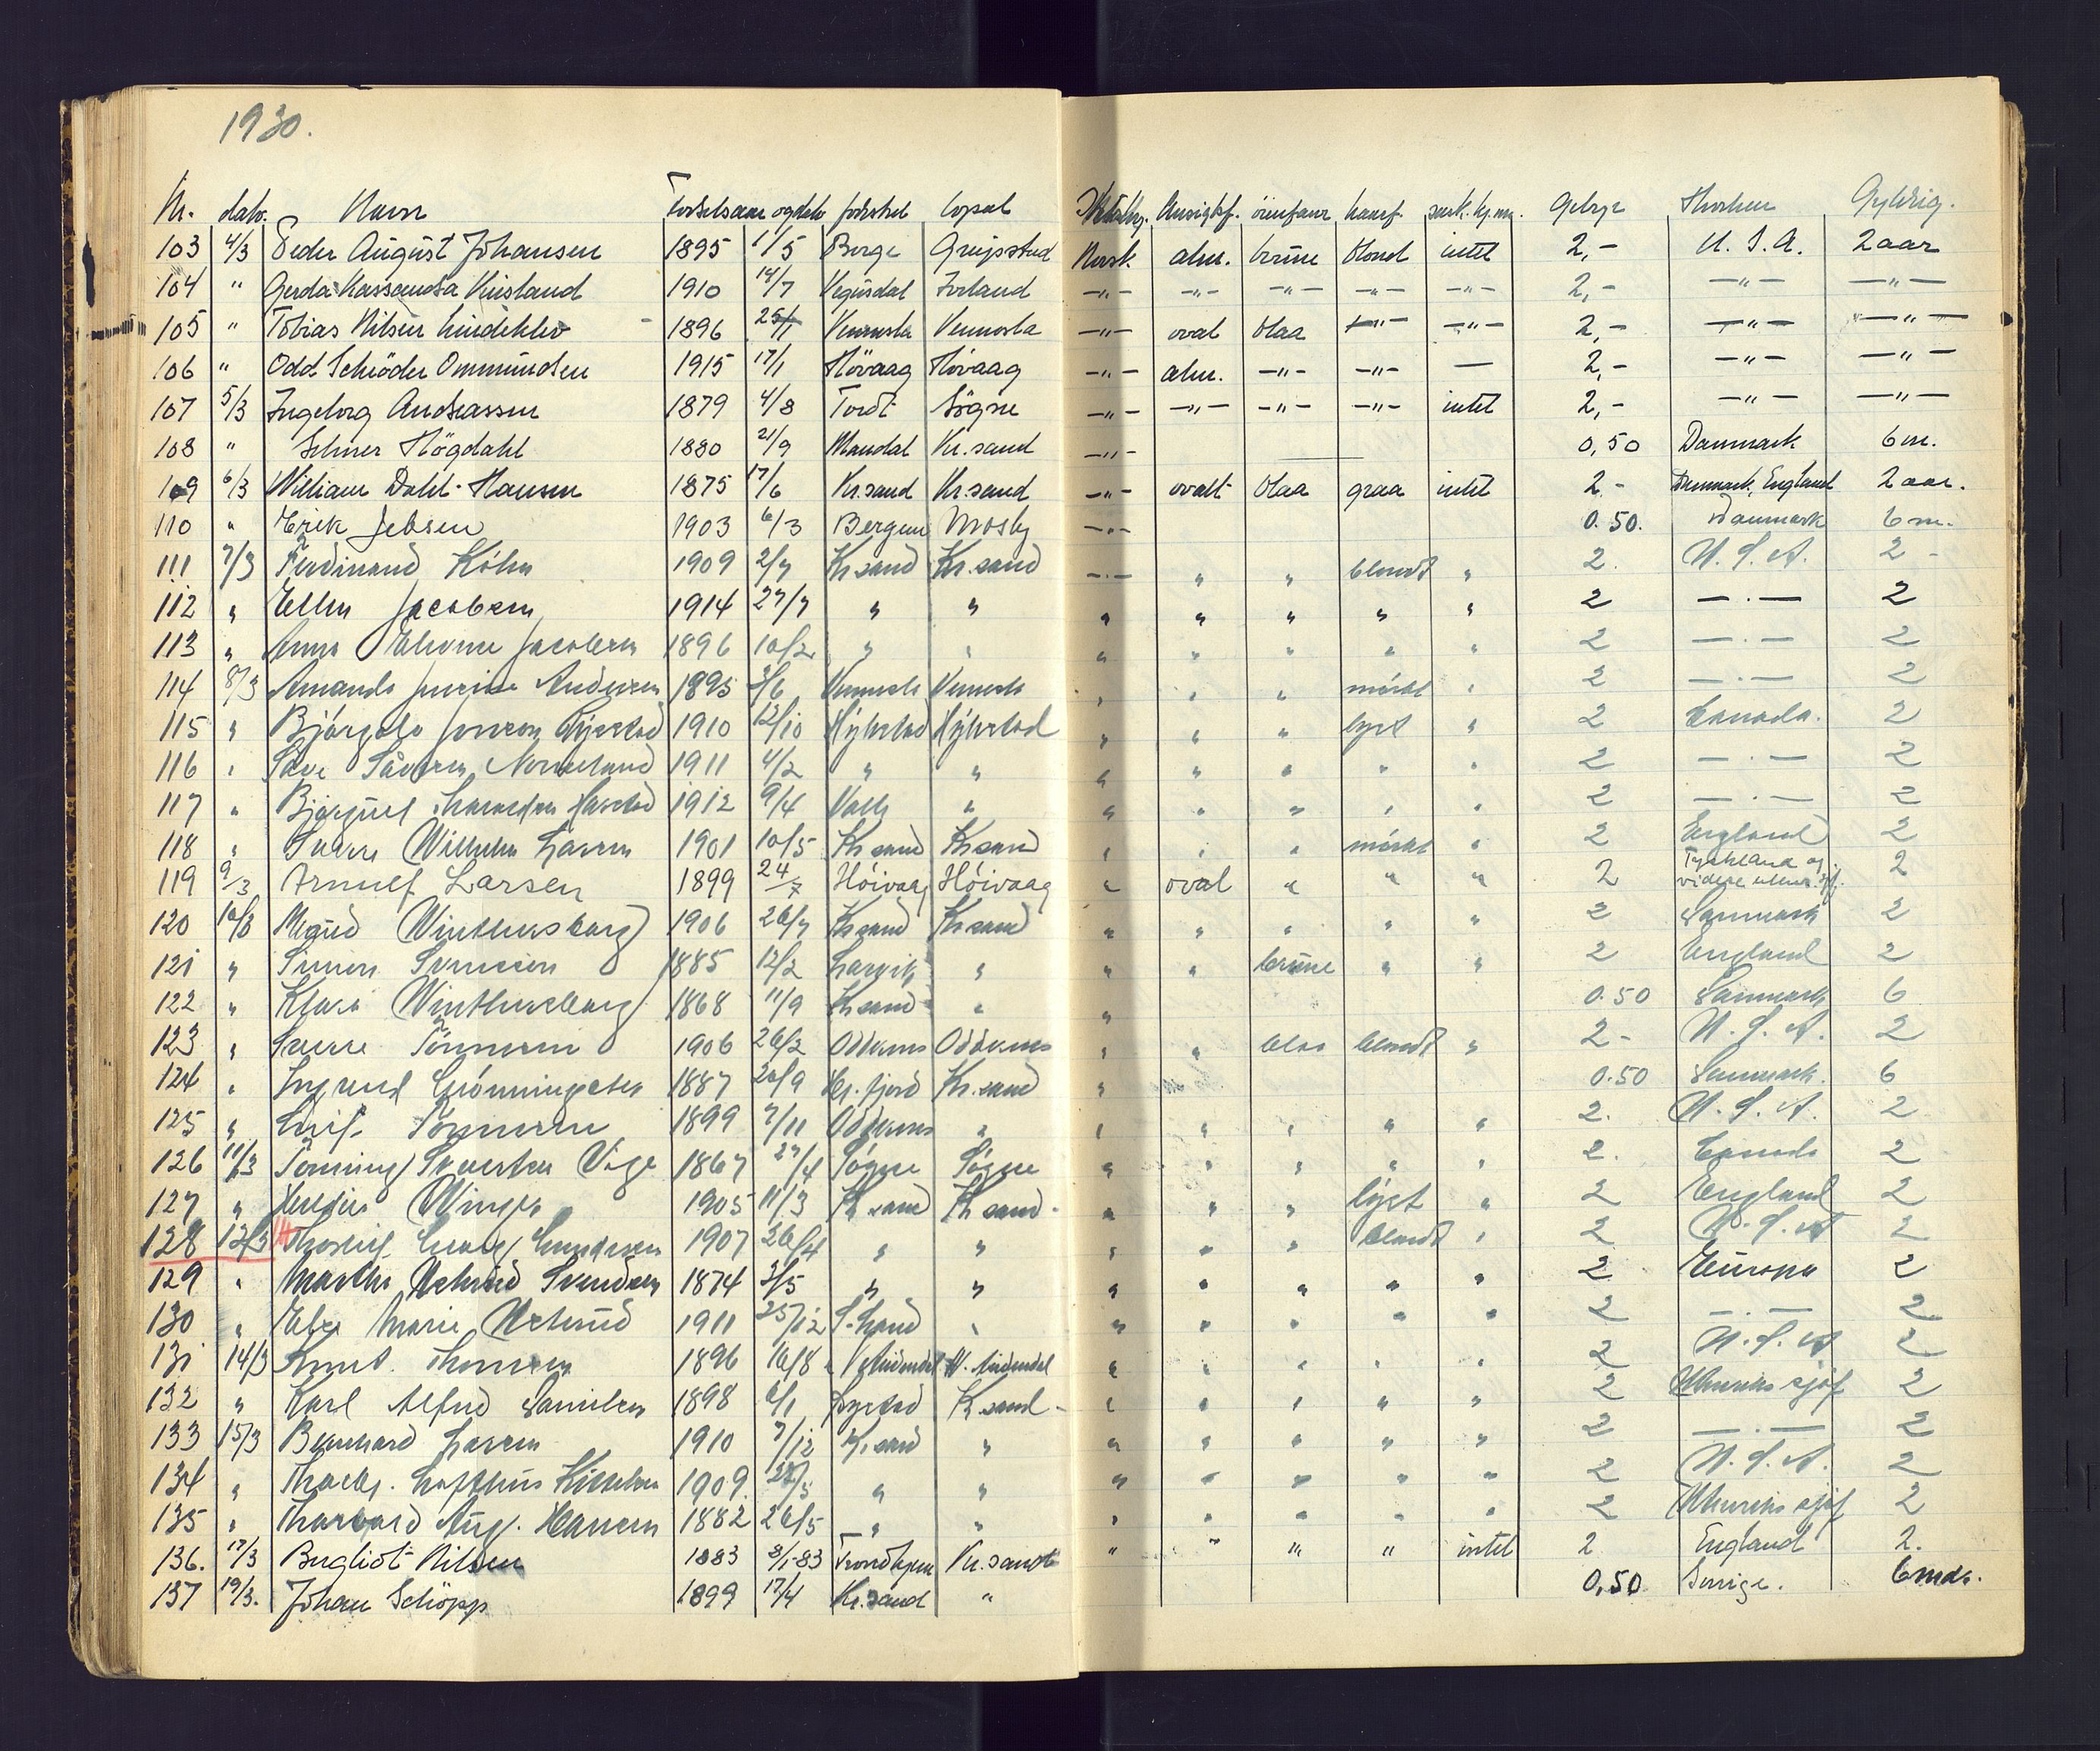 1930.
Nr. dato. Navn Fødselsaar og dato födested bopæl Ansigtsf. öienfarve haarf. særk. kj.m. Gebyr Hvorhen Gyldig.
103 4/3 Peder August Johansen 1895 1/5 Berge Greipstad Norsk alm. brune blond intet 2,- U.S.A. 2 aar
104 " Gerda Kassandra 1910 14/7 Vegusdal —"— —"— —"— —"— —"— 2,- —"— —"—
105 " Tobias Nilsen Lindekleiv 1896 25/1 Vennesla Vennesla —"— oval blaa —"— —"— 2,- —"— —"—
106 " Odd Schröder Ommundsen 1915 17/1 Hövaag Hövaag —"— alm. —"— —"— — 2,- —"— —"—
107 5/3 Ingeborg Andreassen 1879 4/8 Tordt Sögne —"— —"— —"— —"— intet 2,- —"— —"—
108 " Högdahl 1880 21/9 Mandal Kr.sand —"— 0,50 Danmark 6 m.
109 6/3 William Dahl-Hansen 1875 17/6 Kr.sand Kr.sand —"— ovalt blaa graa intet 2.- Danmark, England 2 aar.
110 " Erik Jebsen 1903 6/3 Bergen Mosby —"— 0.50. Danmark 6 m.
111 7/3 Ferdinand Köhn 1909 2/7 Kr.sand Kr.sand —"— " " blondt " 2. U.S.A. 2 -
112 " Ellen Jacobsen 1914 27/7 " " " " " " " 2 —.— 2
113 " Anna Jacobsen 1896 10/2 " " " " " " " 2 —.— 2
114 8/3 Amanda Andersen 1895 3/6 Vennesla Vennesla " " " mörkt " 2 —.— 2
115 " 1910 12/10 Hylestad Hylestad " " " lyst " 2 Canada. 2
116 " 1911 4/2 " " " " " " " 2 —.— 2
117 " 1912 9/4 Valle " " " " " " 2 —.— 2
118 " Sverre Wilhelm Larsen 1901 10/5 Kr.sand Kr.sand " " " mörkt " 2 England 2
119 9/3 Arnulf Larsen 1899 24/7 Höivaag Höivaag " oval " " " 2 Tyskland og videre 2
120 10/3 1906 26/7 Kr.sand Kr.sand " " " " " 2 Danmark 2
121 " 1885 12/2 Larvik " " " brune " " 2 England 2
122 " Klara 1868 11/9 Kr.sand " " 0.50 Danmark 6
123 " Sverre Tönnesen 1906 26/2 Oddernes Oddernes " " blaa blondt " 2- U.S.A. 2
124 " Grönningsæter 1887 20/9 Kr.sand " 0.50 Danmark. 6
125 " Leif Tönnesen 1899 7/11 Oddernes " " " " " " 2. U.S.A. 2
126 11/3 Vige 1867 27/4 Sögne Sögne " " " " " 2. Canada 2
127 " Winge 1905 11/3 Kr.sand Kr.sand. " " " lyst " 2 England 2
128 12/3 1907 26/4 " " " " " blondt " 2 U.S.A 2
129 " Martha Svendsen 1874 3/5 " " " " " " " 2 Europa 2
130 " Marie 1911 25/12 " " " " " " 2 —.— 2
131 14/3 Knut Thomesen 1896 16/8 " " " " " 2 U.S.A 2
132 " Karl Alfred Danielsen 1898 6/1 Kr.sand " " " " " 2 2
133 15/3 Bernhard Larsen 1910 7/12 Kr.sand " " " " " " 2 —.— 2
134 " Lofthus 1909. " " " " " " " 2 U.S.A. 2
135 " Aug. Hansen 1882 26/5 " " " " " " " 2 2
136. 17/3 Bergliot Nilsen 1883 3/1-83 Trondhjem Kr.sand " " " " intet 2 England 2.
137 19/3. Johan Schöpp 1899 17/4 Kr.sand " 0,50 Sverige. 6 mdr.